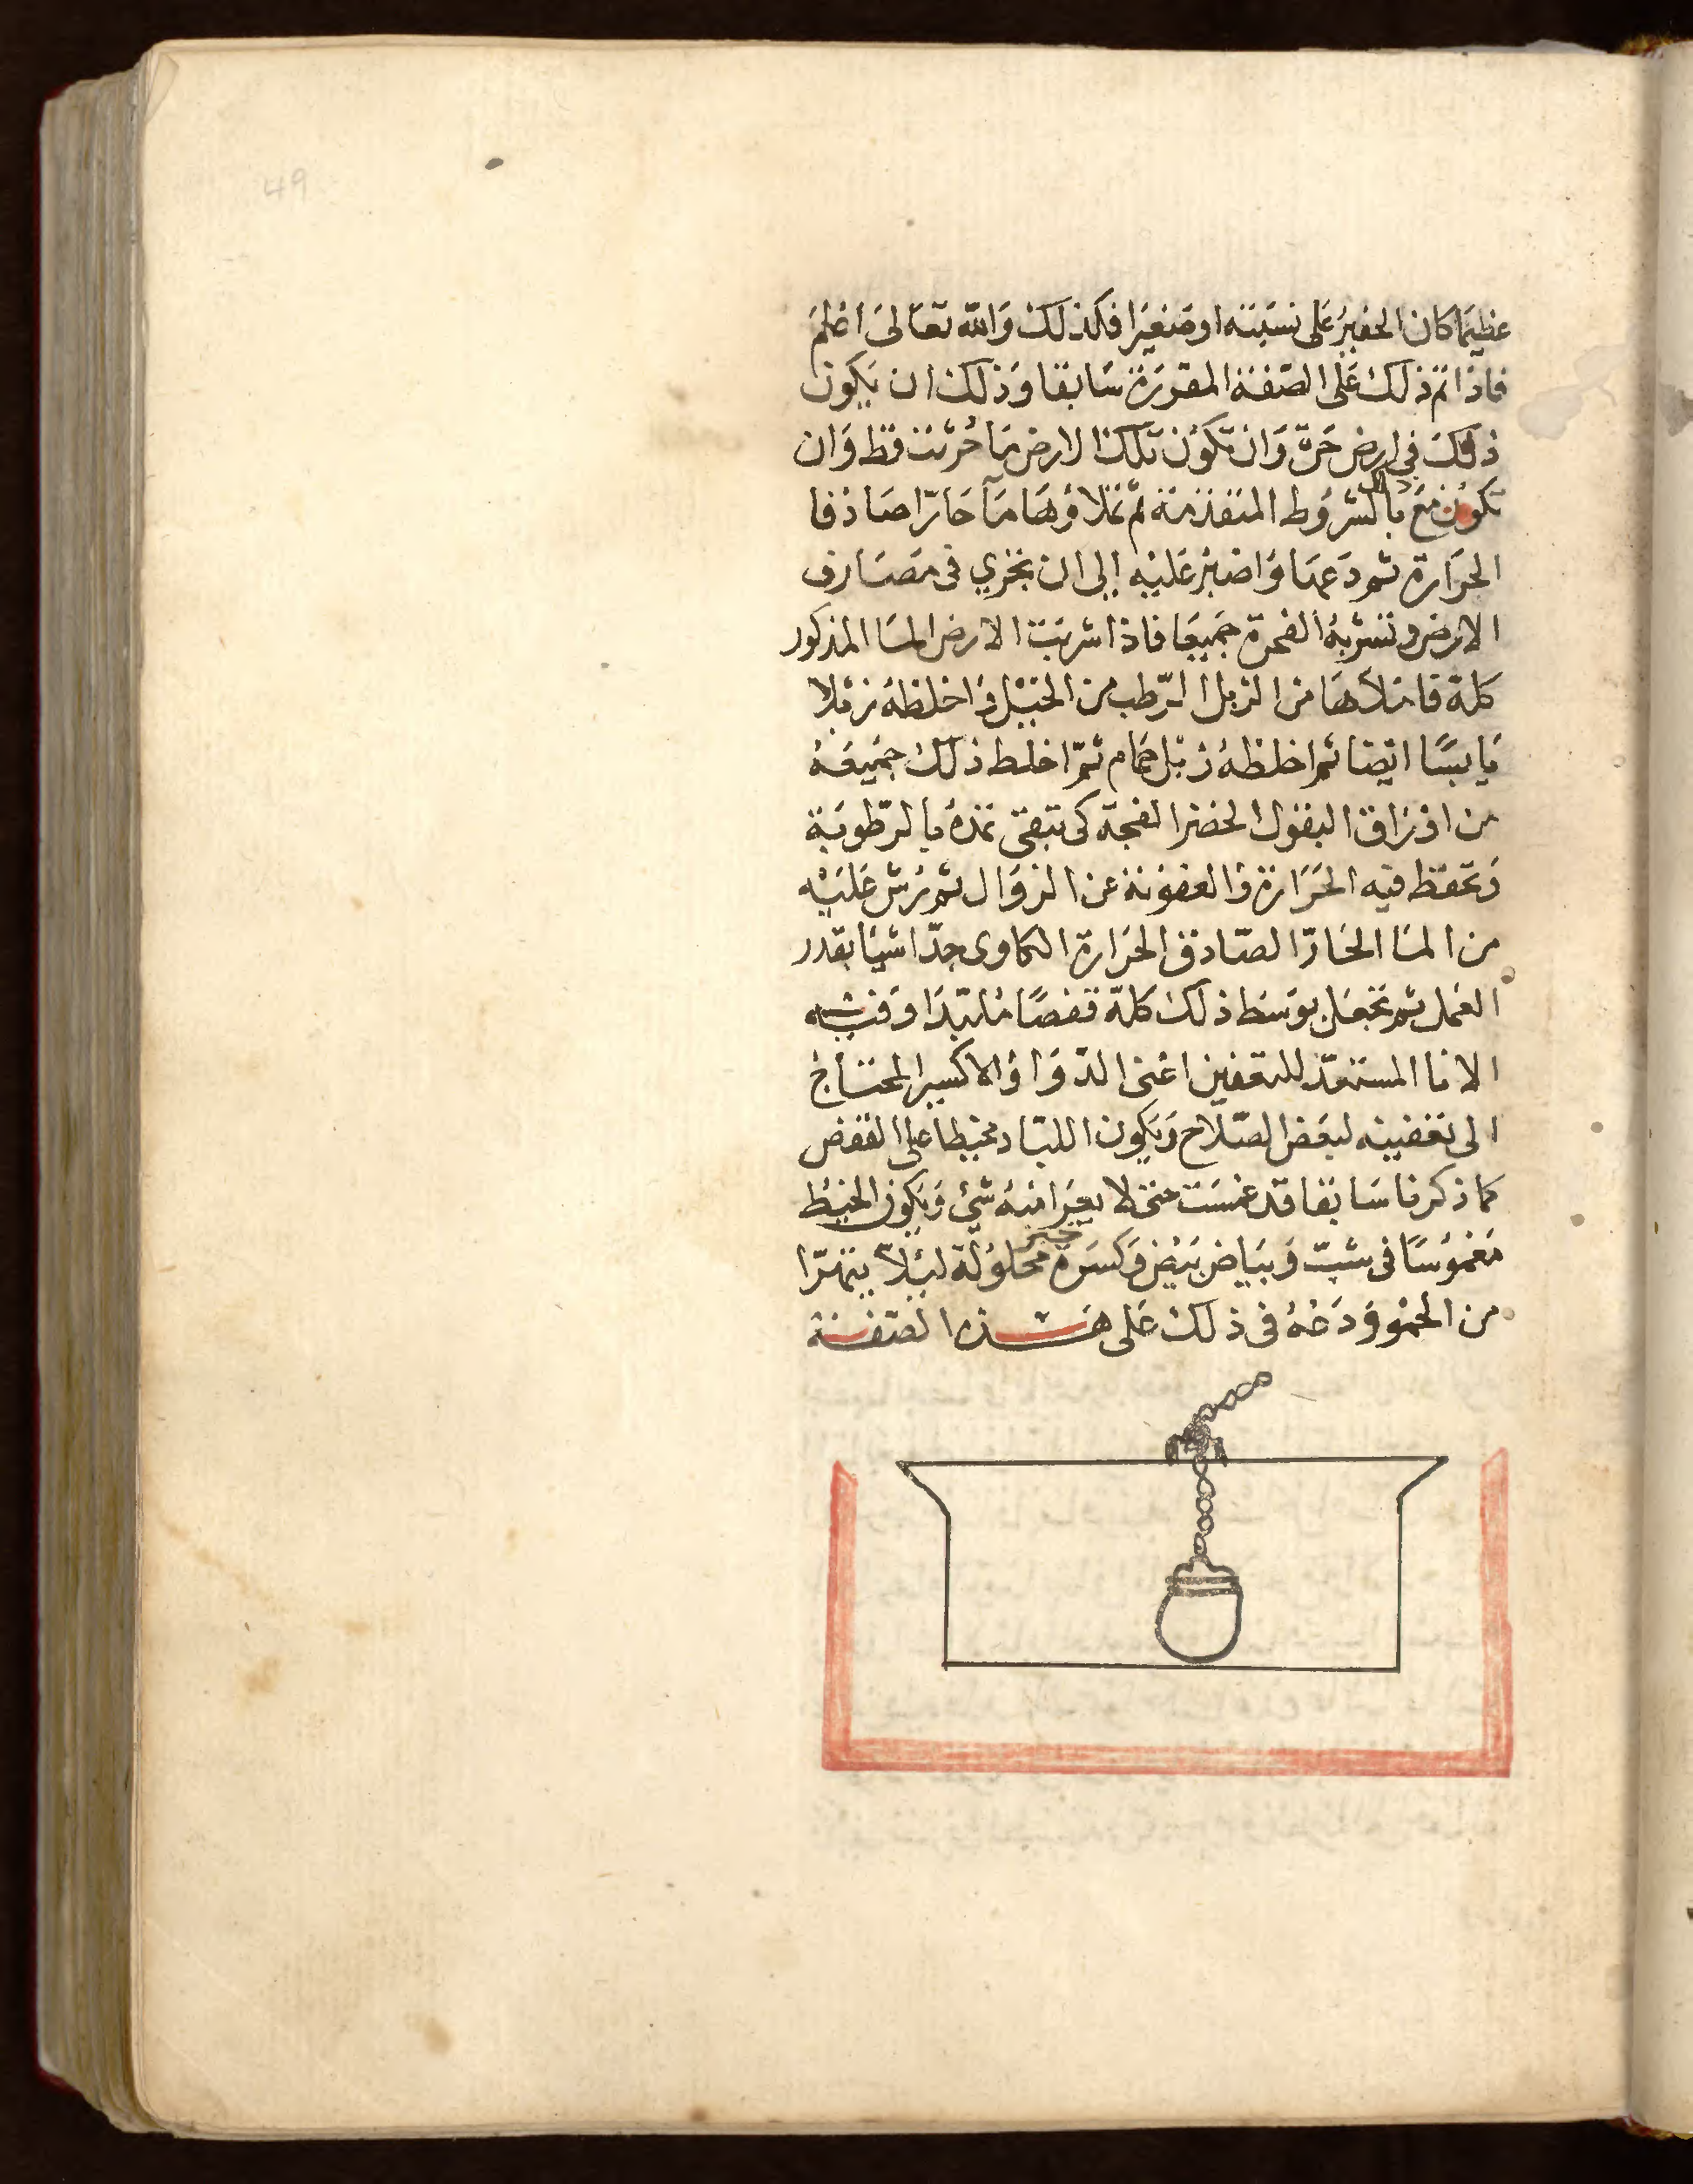 49
عظيما كان الحفير على نسبته او صغيرا فكذلك والله تعالى اعلم
فاذا تم ذلك على الصفة المقررة سابقا وذلك ان يكون
ذلك في ارض حرة وان تكون تلك الارض ما حرثت قط وان
تكون مع ذلك بالشروط المتقدمة ثم تملاؤها مآ حارا صادقا
الحرارة ثم دعها واصبر عليه الى ان يجري في مصارف
الارض وتشربه الفحرة جميعا فاذا شربت الارض الما المذكور
كلة فاملاها من الزبل الرطب من الخيل واخلطه زبلا
يابسا ايضا ثم اخلطه زبل حمام ثم اخلط ذلك جميعه
من اوراق البقول الخضر الفجة كى تبقى تمده بالرطوبة
وتحفظ فيه الحرارة والعفونة عن الزوال ثم رش عليه
من الما الحار الصادق الحرارة الكاوى جدا شيا بقدر
العمل ثم تجعل بوسط ذلك كلة قفصا ملبدا وفيه
الانا المستعد للتعفين اعنى الدوا والاكسير المحتاج
الى تعفينه لبعض الصلاح ويكون اللباد مخيطا على القفص
كما ذكرنا سابقا قد غمست حتى لا يعرا منه شي ويكون الخيط
مغموسا فى شب وبياض بيض وكسرة محلولة ليلا يتهرا
من الحمو ودعه فى ذلك على هذه الصفة